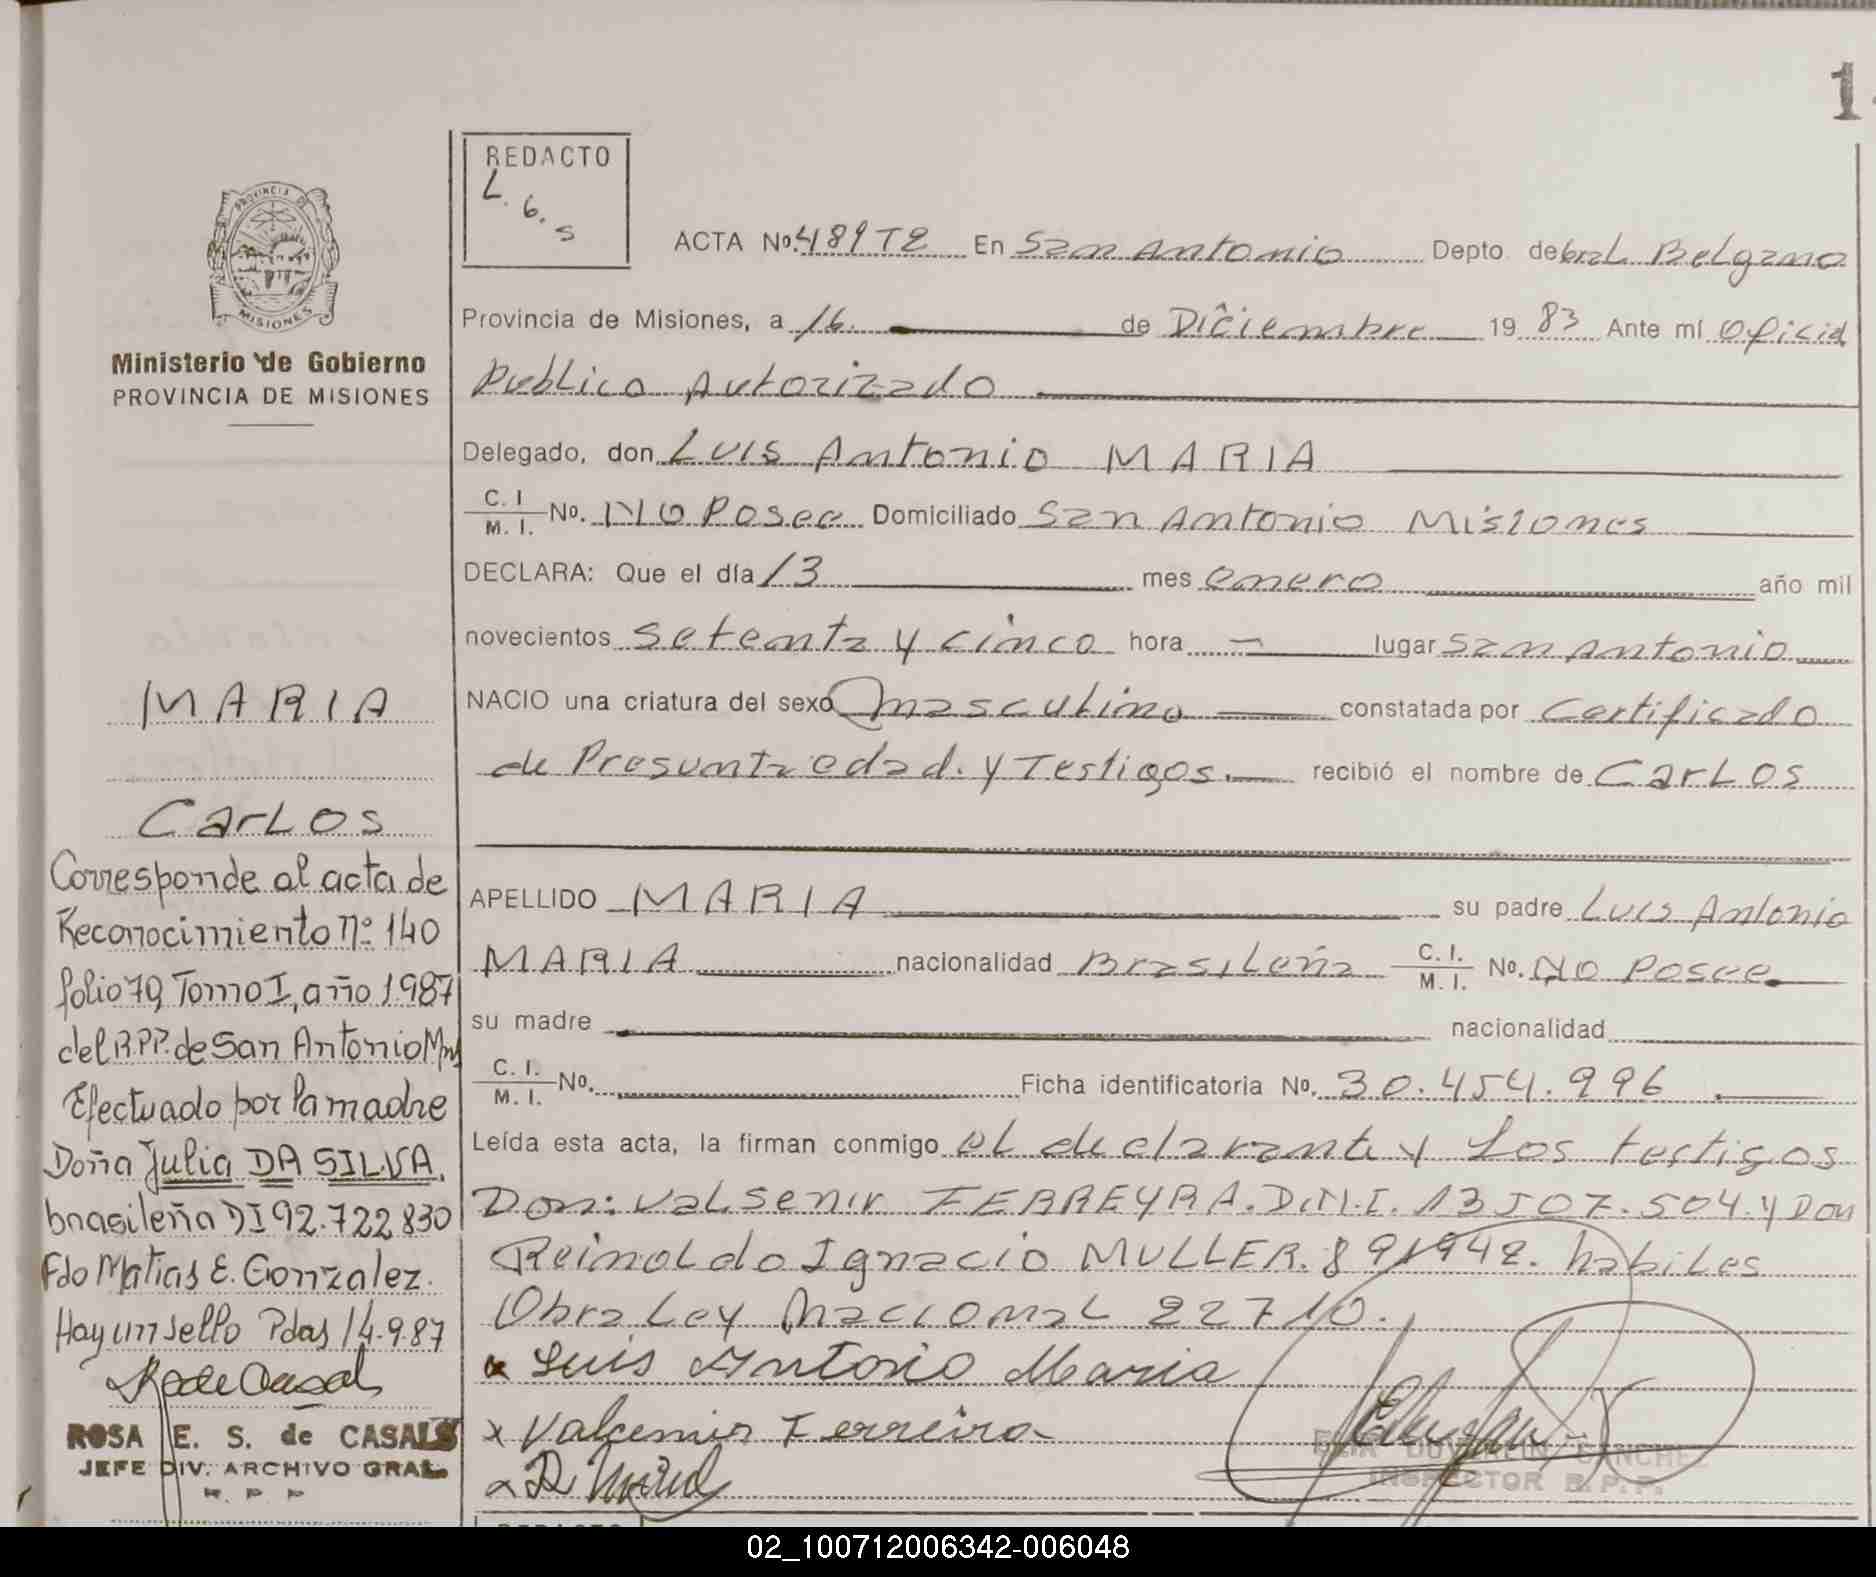 1
REDACTO
L. G. S
PROVINCIA DE
MISIONES
Ministerio de Gobierno
PROVINCIA DE MISIONES
MARIA
Carlos
Corresponde al acta de
Reconocimiento Nº 140
folio 79, Tomo I, año 1987
del R.P.P. de San Antonio Mns
Efectuado por la madre
Doña Julia DA SILVA,
brasileña DI 92.722.830
Fdo Matias E. Gonzalez.
Hay un sello Pdas 14.9.87
ROSA E. S. de CASALS
JEFE DIV. ARCHIVO GRAL.
R. P. P
ACTA Nº. 489 T2 En San Antonio Depto de Gral Belgrano
Provincia de Misiones, a 16 de Diciembre 19 83 Ante mí Oficial
Publico Autorizado
Delegado, don Luis Antonio MARIA
C. I / M. I. Nº. No Posee Domiciliado San Antonio Misiones
DECLARA: Que el día 13 mes enero año mil
novecientos setenta y cinco hora — lugar San Antonio
NACIO una criatura del sexo masculino constatada por Certificado
de Presunta edad. y Testigos. recibió el nombre de Carlos
APELLIDO MARIA su padre Luis Antonio
MARIA nacionalidad Brasileña C. I. / M. I. Nº. No Posee
su madre nacionalidad
C. I. / M. I. Nº. Ficha identificatoria Nº. 30.454.996
Leída esta acta, la firman conmigo el declarante y Los testigos
Don: Valsenir FERREYRA. D.N.I. 13507.504. y Don
Reinoldo Ignacio MULLER. 8 91942. habiles
Obra Ley Nacional 22710.
Luis Antonio Maria
x Valcemir Ferreira
x R
SANCHEZ
INSPECTOR R.P.P.
REDACTO
02_100712006342-006048